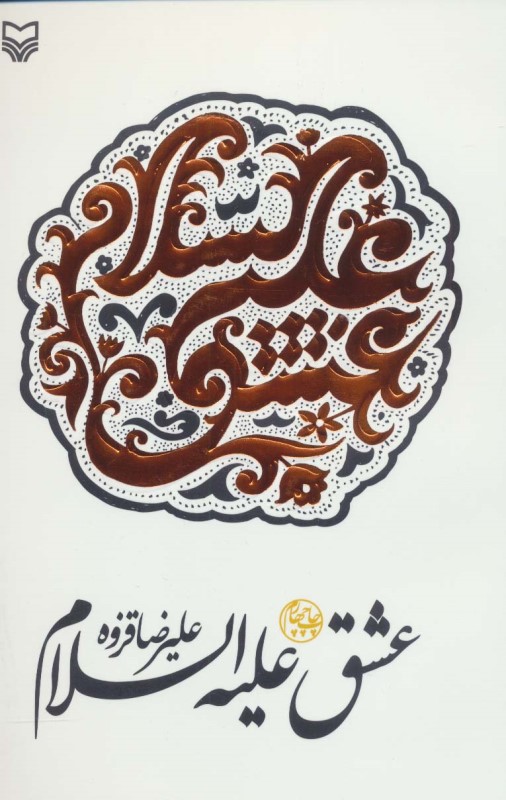 عشق علیه السلام
چاپ چهارم
عشق علیه السلام
علیرضا قزوه